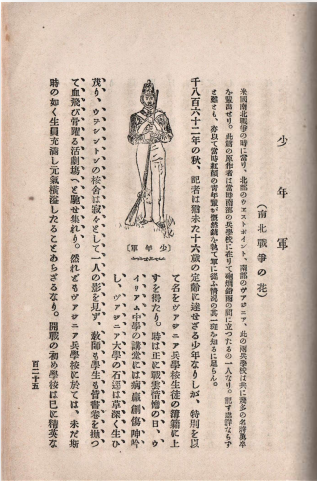 少年軍
(南北戰爭の花)
米國南北戰爭の時に當り、北部のウエストポイント、南部のヴアジニア、此の兩兵學校は共に幾多の名將勇卒
を輩出せり。此篇の原作者は當時南部の兵學校に在りて砲烟鎗雨の間に立つたるの一人なり。記す處詳ならず
と雖とも、亦以て當時紅顏の靑年輩が慨然劒を執て軍に從ふ情況の其一斑を知るに足らん。
千八百六十二年の秋、記者は猶未だ十六歲の定齡に達せざる少年なりしが、特則を以
て名をヴアジニア兵學校生徒の簿籍に上
すを得たり。時は正に戰雲慘憺の日、ウ
イリアム中學の講堂には病羸創傷呻吟
し、ヴアジニア大學の石逕は草深く生ひ
茂り、ワシントンの校舍は寂々として一人の影を見ず、敎師も學生も皆書卷を抛つ
て血飛び骨躍る活劇場へと馳せ集れり。然れどもヴアジニア兵學校に於ては、未だ斯
時の如く生員充滿し元氣橫溢したることあらざるなり。開戰の初め學校は已に精英な
〔少年軍〕
百二十五